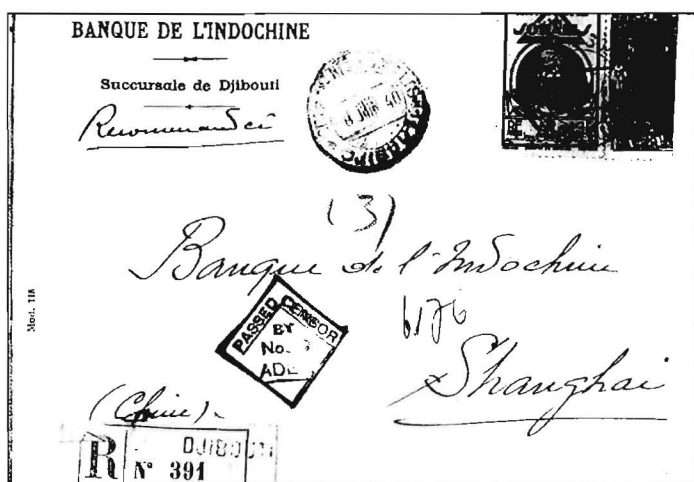 BANQUE DE L'INDOCHINE
Succursale de Djibouti
Recommandée
8 JUIN 40
(3)
Banque de l'Indochine
6176
Shanghai
(Chine)
PASSED CENSOR
BY
No.
AD
R
DJIBOUTI
N° 391
Mod. 118